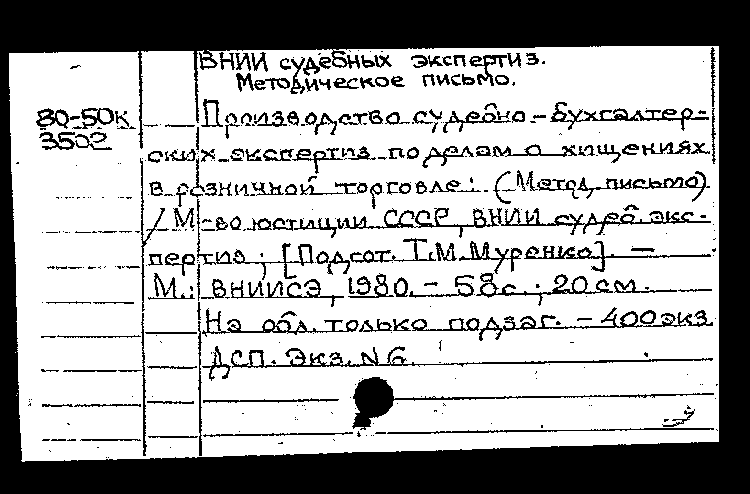 ВНИИ судебных экспертиз.
Методическое письмо.
80-50к
3502
Производство судебно-бухгалтер-
ских экспертиз по делам о хищениях
в розничной торговле: (Метод. письмо)
/ М-во юстиции СССР, ВНИИ судеб. экс-
пертиз; [Подгот. Т.М. Муренко]. —
М.: ВНИИСЭ, 1980. - 58с.; 20 см.
На обл. только подзаг. - 400 экз.
ДСП. Экз. N 6.